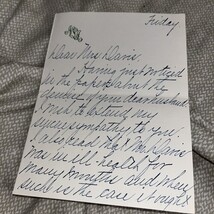 Friday
Dear Mrs Davis
Having just noticed
in the paper about the
of your dear husband
I wish to extend my
sincere sympathy to you.
I also read that Mr. Davis
was in ill-health for
many months and when
such is the case it ought